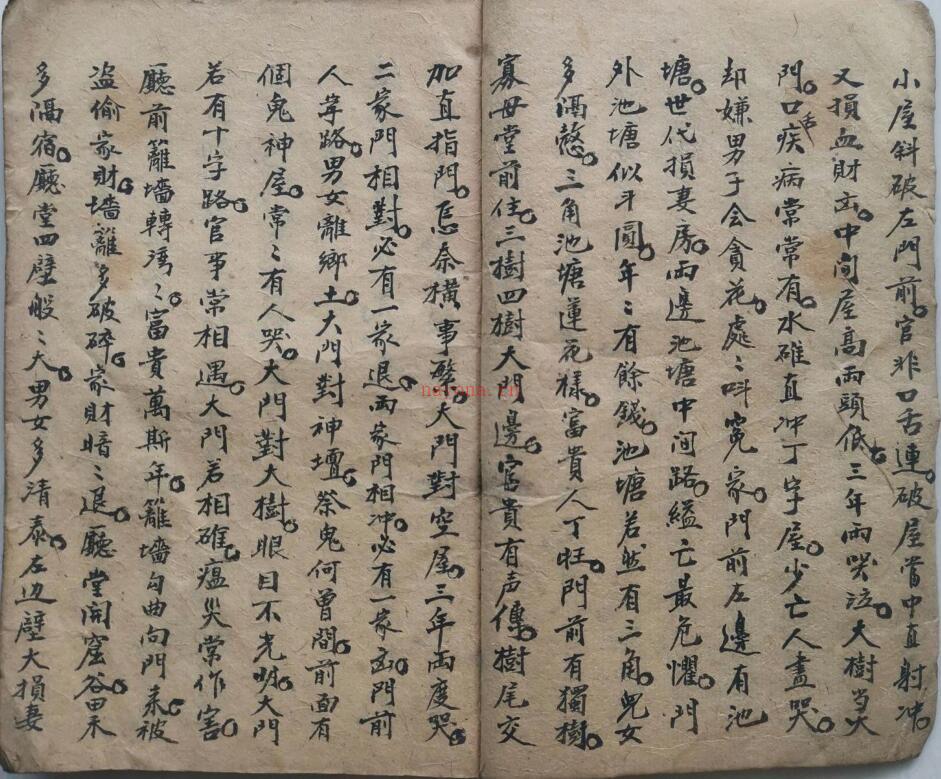 小屋斜破左門前。官非口舌連。破屋當中直射冲。
又損血財凶。中间屋高兩頭低。三年兩哭泣。大樹当大
門。口舌疾病常常有。水碓直冲丁字屋。少亡人盡哭。
却嫌男子会貪花。處〻叫寃家。門前左邊有池
塘。世代損妻房。兩邊池塘中间路。縊亡最危懼。門
外池塘似斗圓。年〻有餘錢。池塘若然有三角。兒女
多灑愁。三角池塘蓮花樣。富貴人丁旺。門前有獨樹。
寡母堂前住。三樹四樹大門邊。富貴有声傳。樹尾交
加直指門。忌奈橫事繁。大門對空屋。三年兩度哭。
二家門相對。必有一家退。兩家門相冲。必有一家凶。門前
人字路。男女離鄉土。大門對神壇。祭鬼何曾閒。前面有
個鬼神屋。常〻有人哭。大門對大樹。眼目不光明。大門
若有十字路。官事常相遇。大門若相碓。瘟災常作害。
廳前籬墻轉灣〻。富貴萬斯年。籬墻勾曲向門来。被
盗偷家財。墻籬多破碎。家財暗〻退。廳堂開窟谷田来
多隔宿。廳堂四壁般〻大。男女多清泰。左边壁大損妻
narana.cn